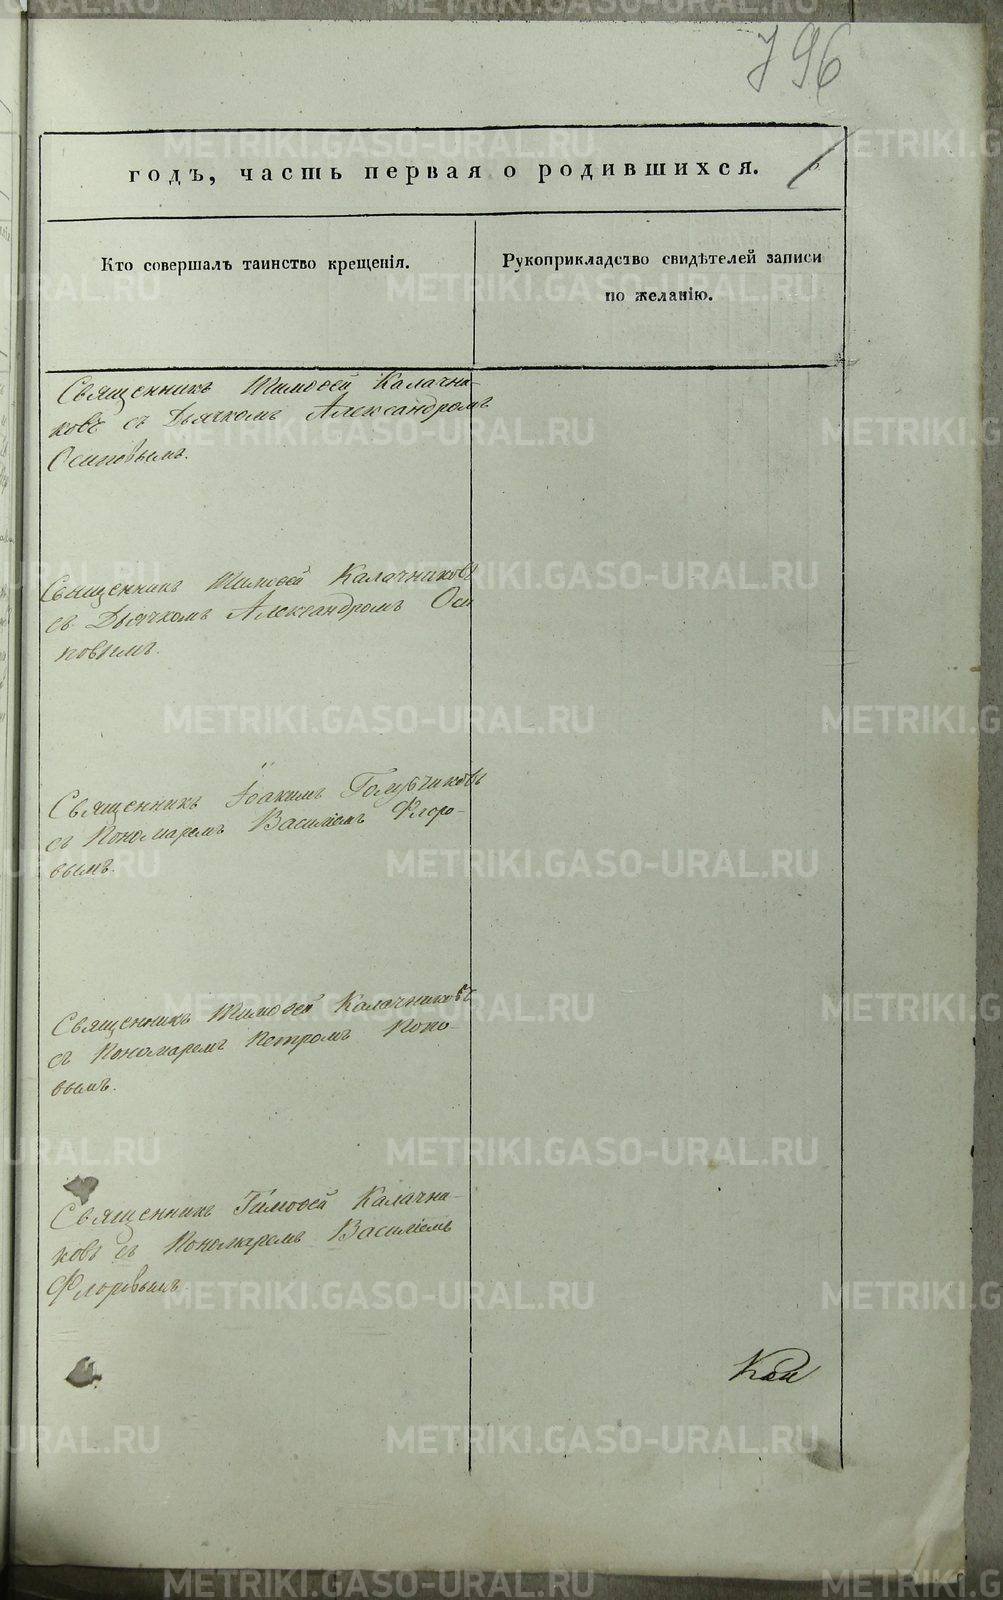 796
годъ, часть первая о родившихся.
Кто совершалъ таинство крещенія.
Рукоприкладство свидѣтелей записи
по желанію.
Священникъ Тимоѳей Калачни-
ковъ съ Дьячкомъ Александромъ
Осиповымъ.
Священникъ Тимоѳей Калачниковъ
съ Дьячкомъ Александромъ Оси
повымъ.
Священникъ Іоакимъ Голубчиковъ
съ Пономаремъ Василіемъ Флоро-
вымъ.
Священникъ Тимоѳей Калачниковъ
съ Пономаремъ Петромъ Попо-
вымъ.
Священникъ Тимоѳей Калачни-
ковъ съ Пономаремъ Василіемъ
Флоровымъ.
METRIKI.GASO-URAL.RU